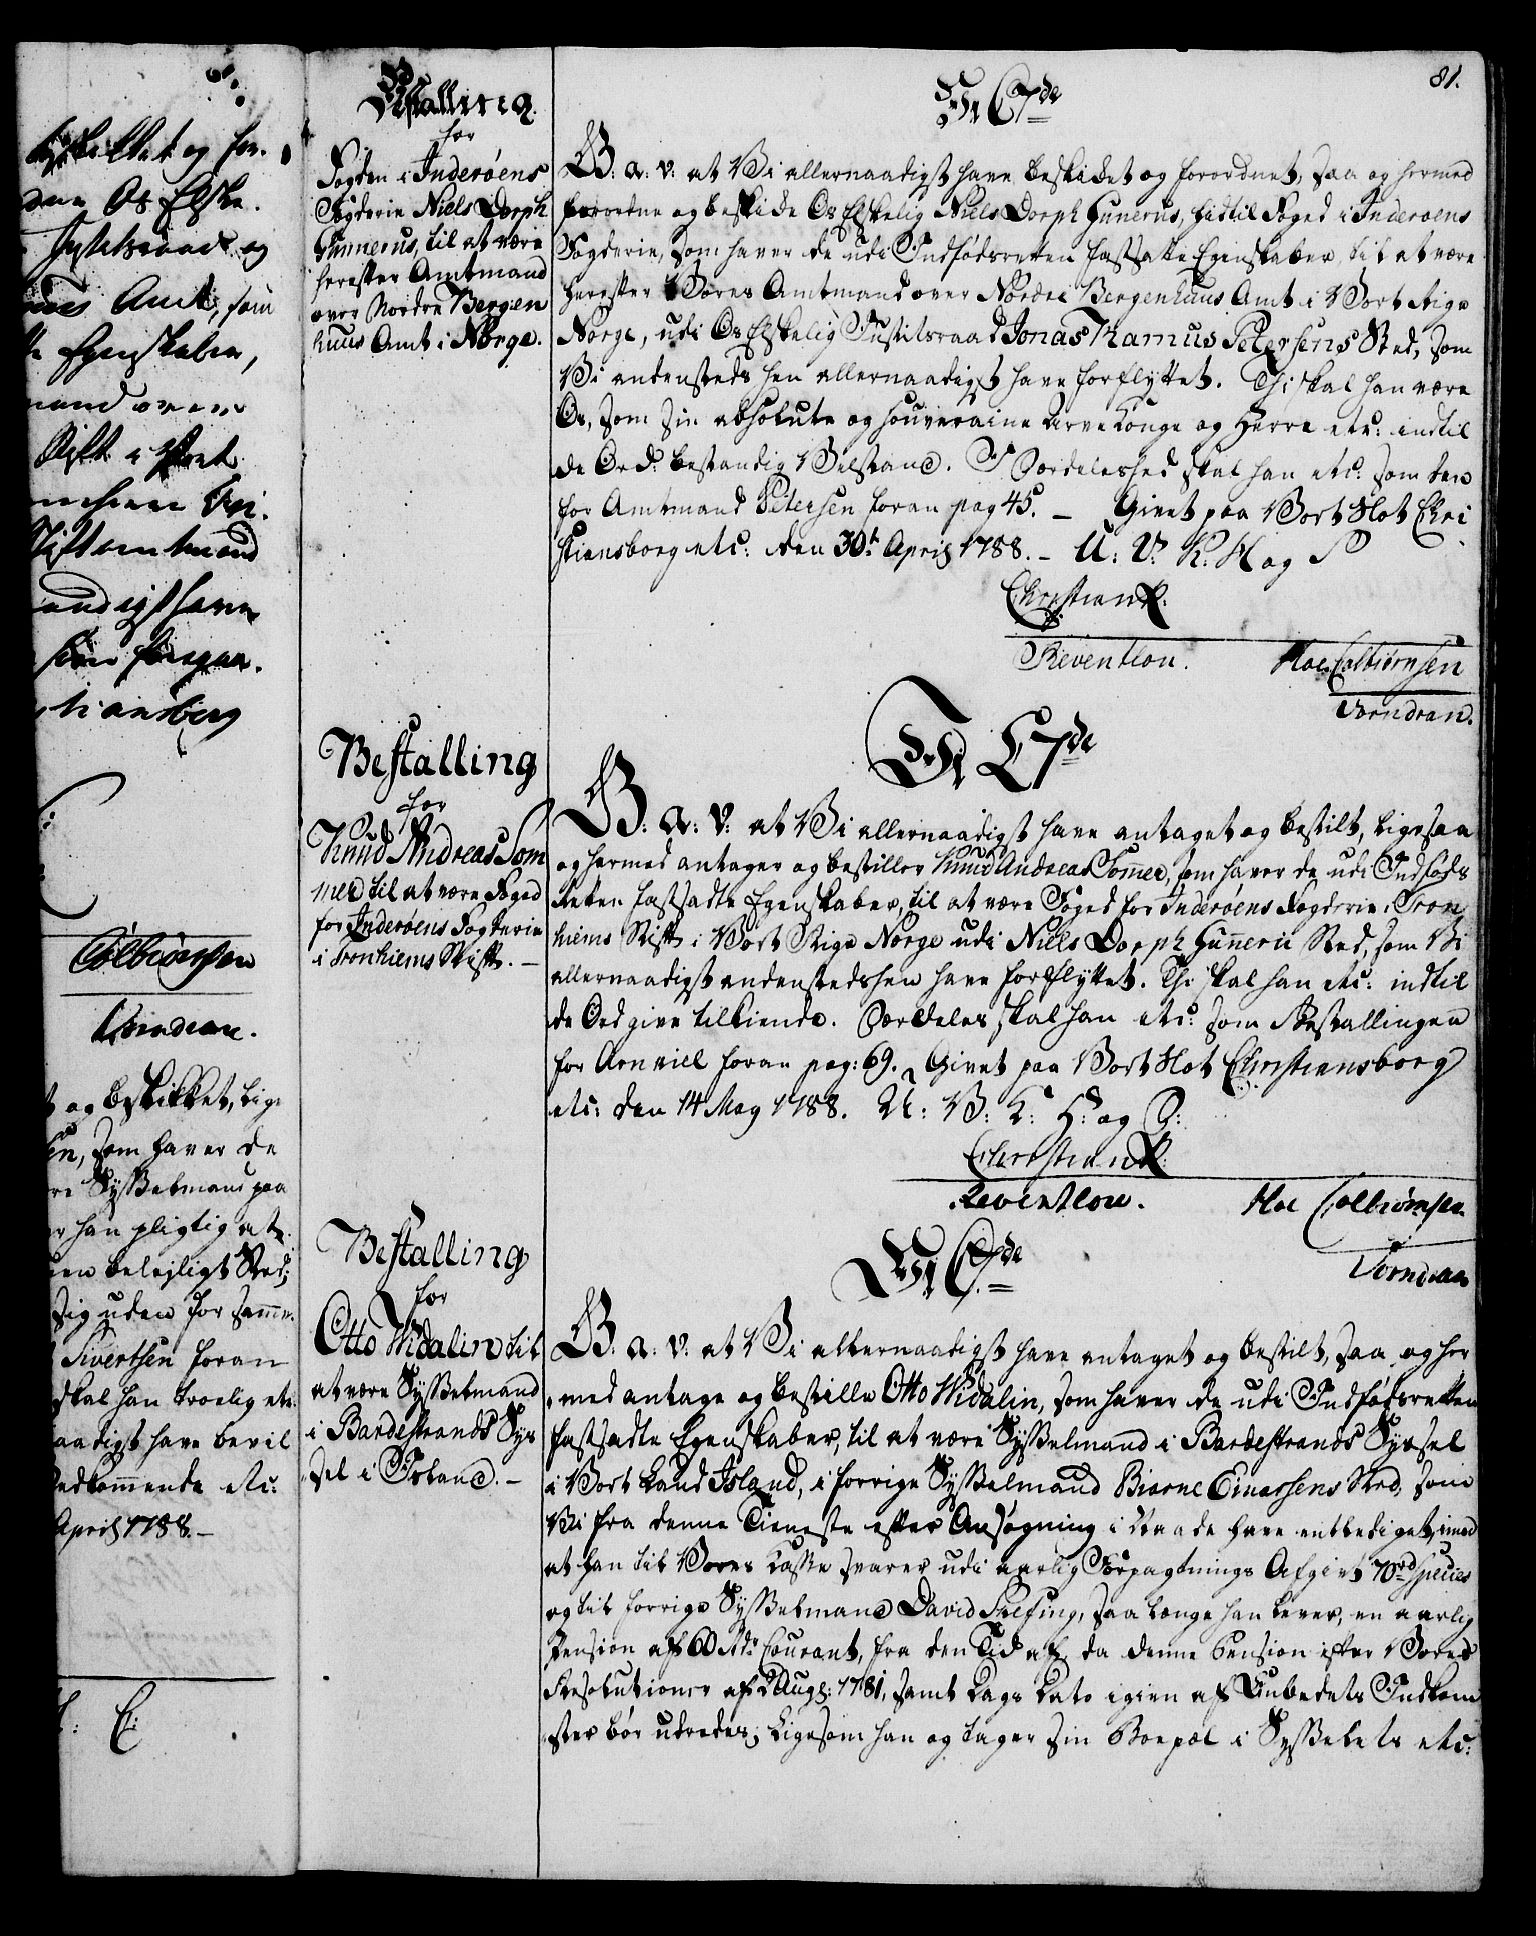 beskikket og for-
Os Elske-
Justitsraad og
Amt, som
Egenskaber,
mand over
Stift i Vort
Stiftamtmand
tiansborg
Colbiørnsen
Vorndran.
og beskikket, lige
som haver de
Sysselmand paa
han pligtig at
beleiligt Sted;
sig uden for samme
Sivertsen foran
skal han troelig etc:
naadigst have bevil
vedkommende etc:
April 1788. –
Bestalling
for
Fogden i Inderøens
Fogderie Niels Dorph
Gunnerus, til at være
herefter Amtmand
over Nordre Bergen
huus Amt i Norge.
Bestalling
for
Knud Andreas Som
mer til at være Foged
for Inderøens Fogderie
i Tronhiems Stift. –
Bestalling
for
Otto Widalin til
at være Sysselmand
i Bardestrands Sys
sel i Island. –
81.
Vi C 7de
G: a: v: at Vi allernaadigst have beskicket og forordnet, saa og hermed
forordne og beskicke Os Elskelig Niels Dorph Gunerus, hidtil Foged i Inderøens
Fogderie, som haver de udi Indfødsretten fastsatte Egenskaber, til at være
herefter Vores Amtmand over Nordre Bergenhuus Amt i Vort Rige
Norge, udi Os Elskelig Justitsraad Jonas Ramus Petersens Sted, som
Vi andensteds hen allernaadigst have forflyttet. Thi skal han være
Os, som sin absolute og souveraine Arve Konge og Herre etc: indtil
de Ord: bestandig Velstand. I Særdeleshed skal han etc: som den
for Amtmand Petersen foran pag 45. – Givet paa Vort Slot Chri
stiansborg etc: den 30t April 1788. – U: V: K: H og S
Christian R.
Reventlow. Hoe Colbiørnsen
Vorndran.
Vi C 7de
G: a: v: at Vi allernaadigst have antaget og bestilt, ligesaa
og hermed antager og bestiller Knud Andreas Somer, som haver de udi Indføds
Retten fastsadte Egenskaber, til at være Foged for Inderøens Fogderie i Tron
hiems Stift i Vort Rige Norge udi Niels Dorph Guneri Sted, som Vi
allernaadigst andenstedshen have forflyttet. Thi skal han etc: indtil
de Ord give tilkiende. Særdeles skal han etc: som Bestallingen
for Arnviel foran pag: 69. Givet paa Vort Slot Christiansborg
etc: den 14 May 1788. U: V: K: H: og S:
Christian R.
Reventlow. Hoe Colbiørnsen
Vorndran
Vi C. 7de
G: a: v: at Vi allernaadigst have antaget og bestilt, saa og her
med antage og bestille Otto Widalin, som haver de udi Indfødsretten
fastsadte Egenskaber, til at være Sysselmand i Bardestrands Syssel
i Vort Land Island, i forrige Sysselmand Biarne Einarsens Sted, som
Vi fra denne Tieneste efter Ansøgning i Naade have entlediget, imod
at han til Vores Kasse svarer udi aarlig Forpagtnings Afgivt 70 rd species
og til forrige Sysselmand David Skefing, saa længe han lever, en aarlig
Pension af 60 Rdr Courant, fra den Tid af, da denne Pension efter Vores
Resolutioner af 2 Aug: 1781, samt Dags Dato igien af Embedets Indkom
ster bør udredes; ligesom han og tager sin Boepæl i Sysselets etc: